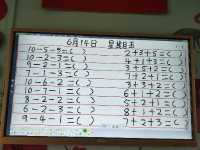 6月14日 星期五
10-5-5=( ) 2+3+5=( )
10-2-3=( ) 4+1+3=( )
9-2-1=( ) 3+5+2=( )
7-1-3=( ) 7+2+1=( )
10-6-2=( ) 3+3+2=( )
10-7-1=( ) 6+1+2=( )
8-2-2=( ) 5+2+1=( )
6-2-3=( ) 8+1+1=( )
9-4-1=( ) 7+2+3=( )